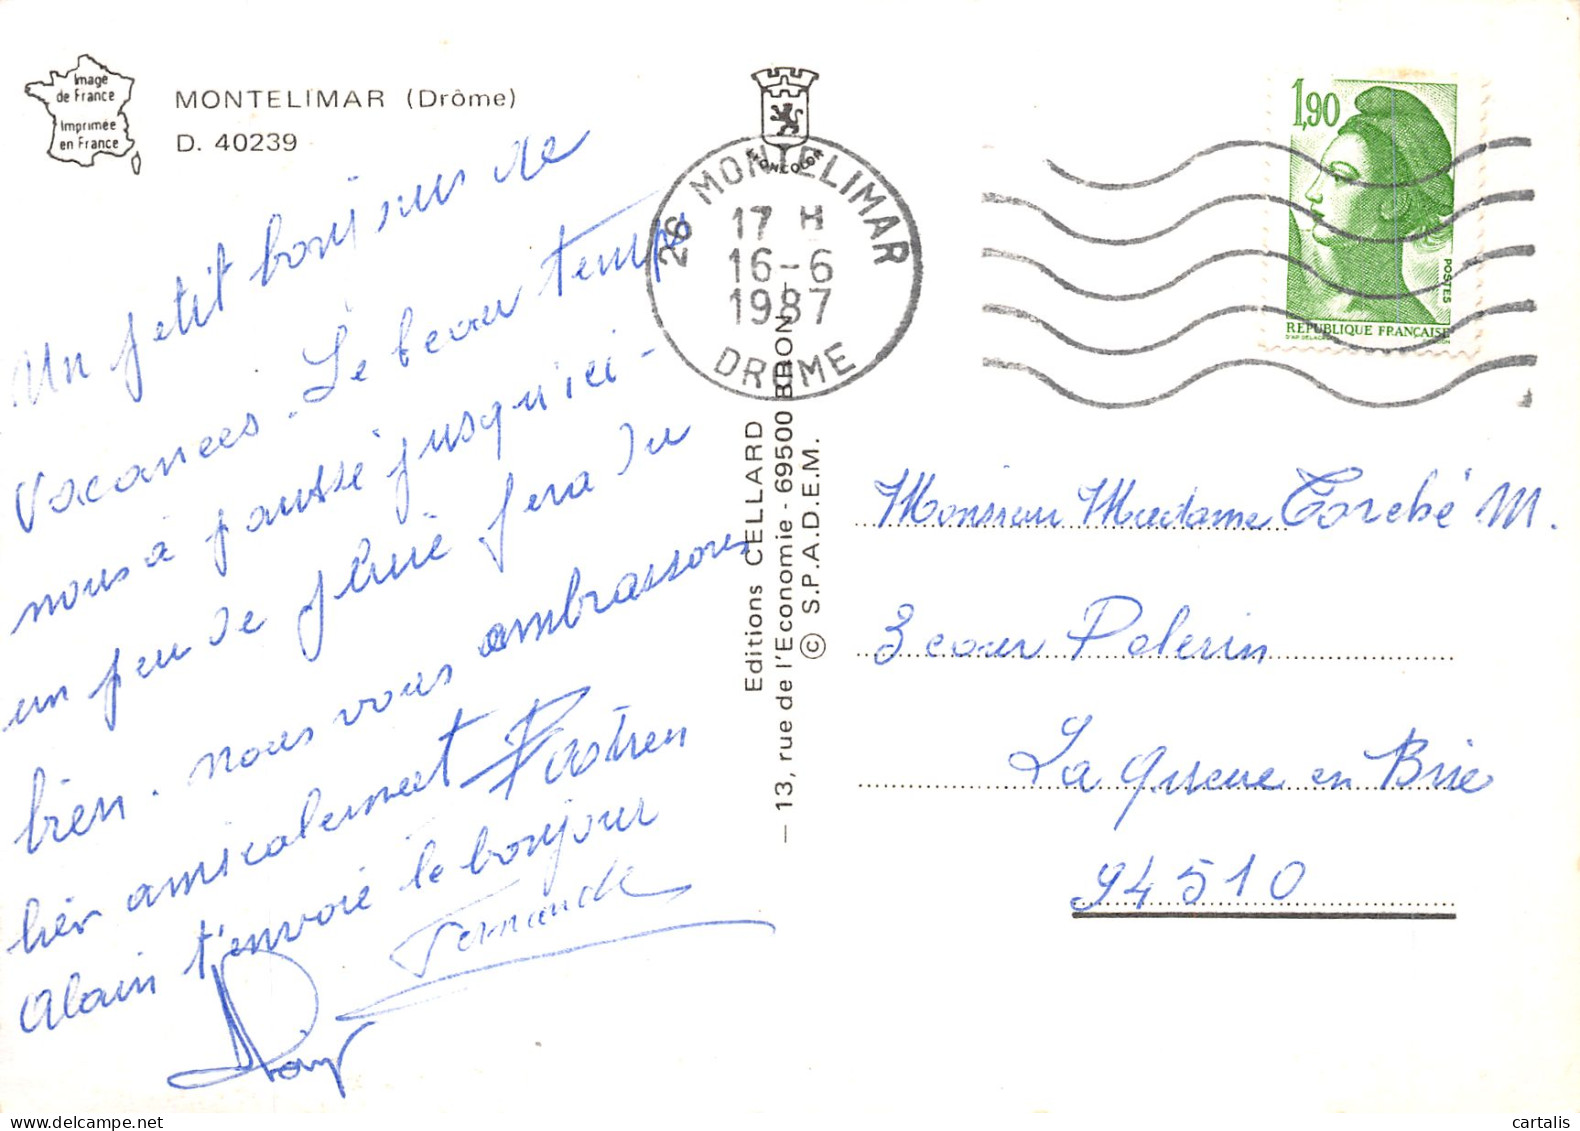 Image
de France
Imprimée
en France
MONTELIMAR (Drôme)
D. 40239
Un petit bonjour de
Vacances. Le beau temps
nous à pausse jusqu'ici -
un peu de pluie fera du
bien. nous vous ambrassons
bien amicalement
Alain t'envoie le bonjour
Fernande
MONCOLOR
26 MONTELIMAR
17 H
16-6
1987
DROME
Editions CELLARD
— 13, rue de l'Economie - 69500 BRON —
© S.P.A.D.E.M.
1,90
POSTES
REPUBLIQUE FRANÇAISE
Monsieur Madame Torché M.
3 cour Pelerin
La Queue en Brie
94510
cartalis